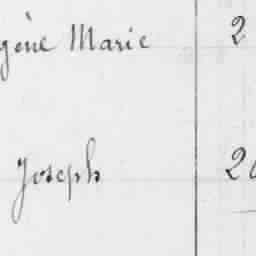 gène Marie 2
Joseph 20